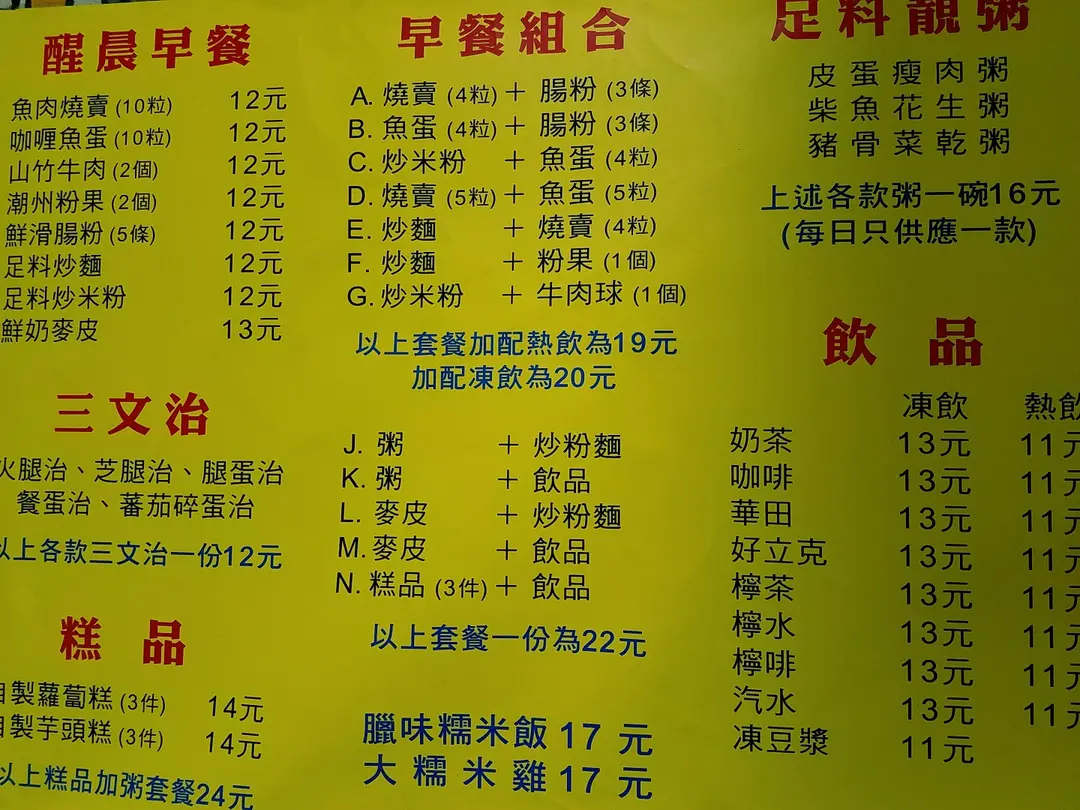 醒晨早餐
魚肉燒賣 (10粒) 12元
咖喱魚蛋 (10粒) 12元
山竹牛肉 (2個) 12元
潮州粉果 (2個) 12元
鮮滑腸粉 (5條) 12元
足料炒麵 12元
足料炒米粉 12元
鮮奶麥皮 13元
三文治
火腿治、芝腿治、腿蛋治
餐蛋治、蕃茄碎蛋治
以上各款三文治一份12元
糕品
自製蘿蔔糕 (3件) 14元
自製芋頭糕 (3件) 14元
以上糕品加粥套餐24元
早餐組合
A. 燒賣 (4粒) + 腸粉 (3條)
B. 魚蛋 (4粒) + 腸粉 (3條)
C. 炒米粉 + 魚蛋 (4粒)
D. 燒賣 (5粒) + 魚蛋 (5粒)
E. 炒麵 + 燒賣 (4粒)
F. 炒麵 + 粉果 (1個)
G. 炒米粉 + 牛肉球 (1個)
以上套餐加配熱飲為19元
加配凍飲為20元
J. 粥 + 炒粉麵
K. 粥 + 飲品
L. 麥皮 + 炒粉麵
M. 麥皮 + 飲品
N. 糕品 (3件) + 飲品
以上套餐一份為22元
臘味糯米飯 17 元
大糯米雞 17 元
足料靚粥
皮蛋瘦肉粥
柴魚花生粥
豬骨菜乾粥
上述各款粥一碗16元
(每日只供應一款)
飲品
凍飲 熱飲
奶茶 13元 11元
咖啡 13元 11元
華田 13元 11元
好立克 13元 11元
檸茶 13元 11元
檸水 13元 11元
檸啡 13元 11元
汽水 13元 11元
凍豆漿 11元